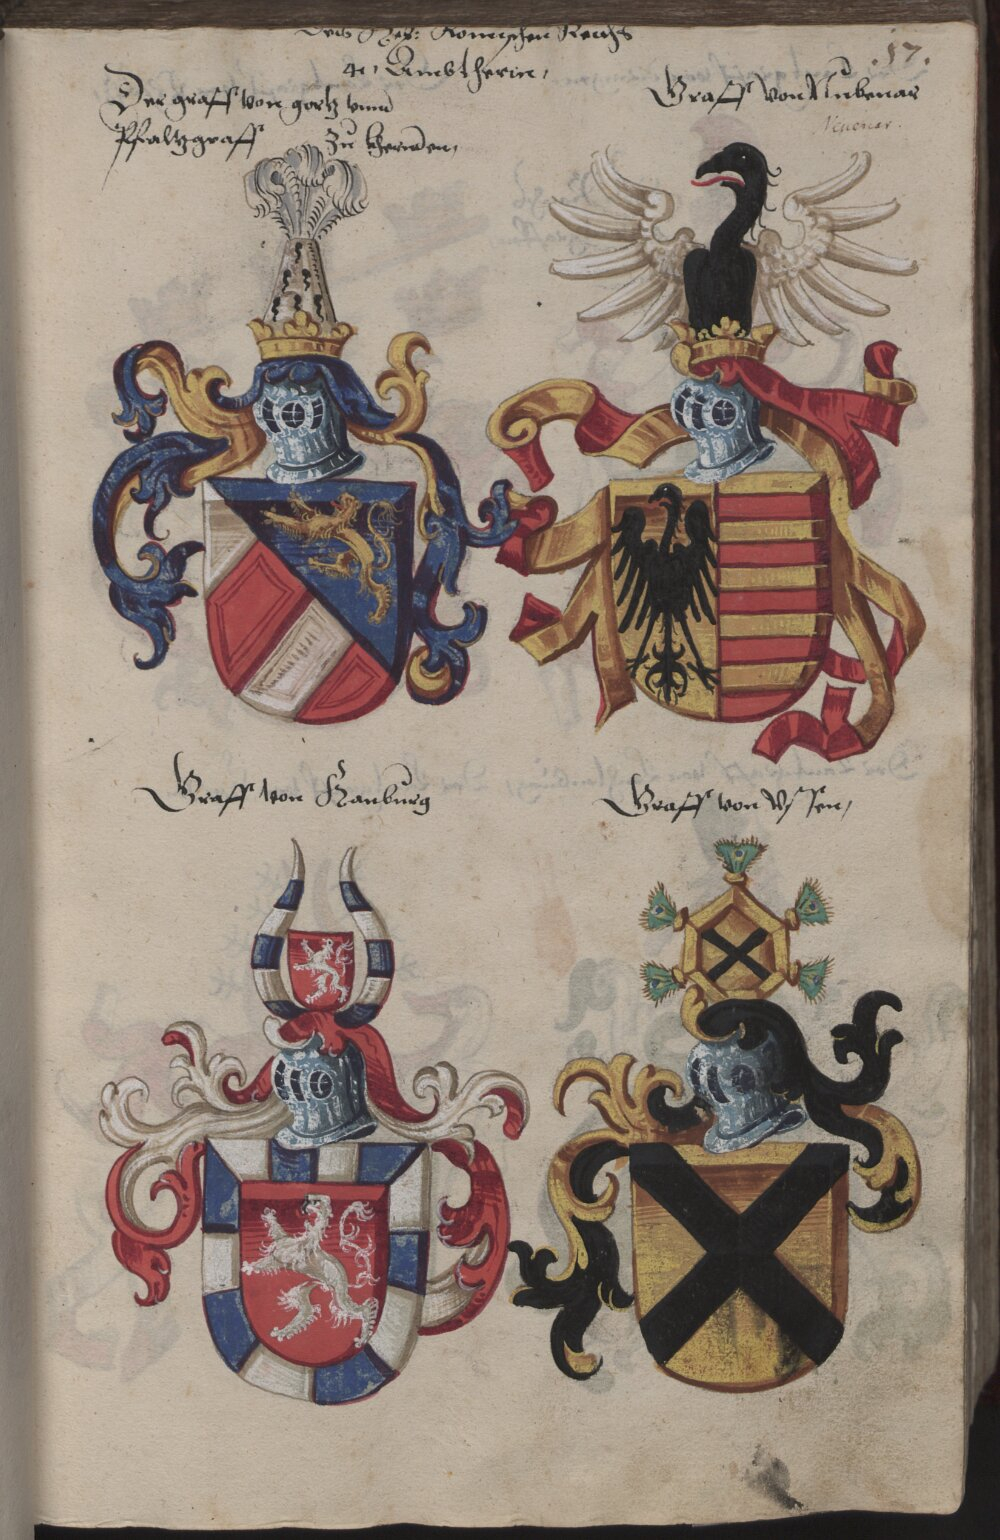 Des Hey: Romischen Reichs
4, Ambtherrn,
.17.
Der graff von gortz vnnd
Pfaltzgraff zu kernden,
Graff von Nubenar
Neuenar.
Graff von Hanburg
Graff von Vssen,